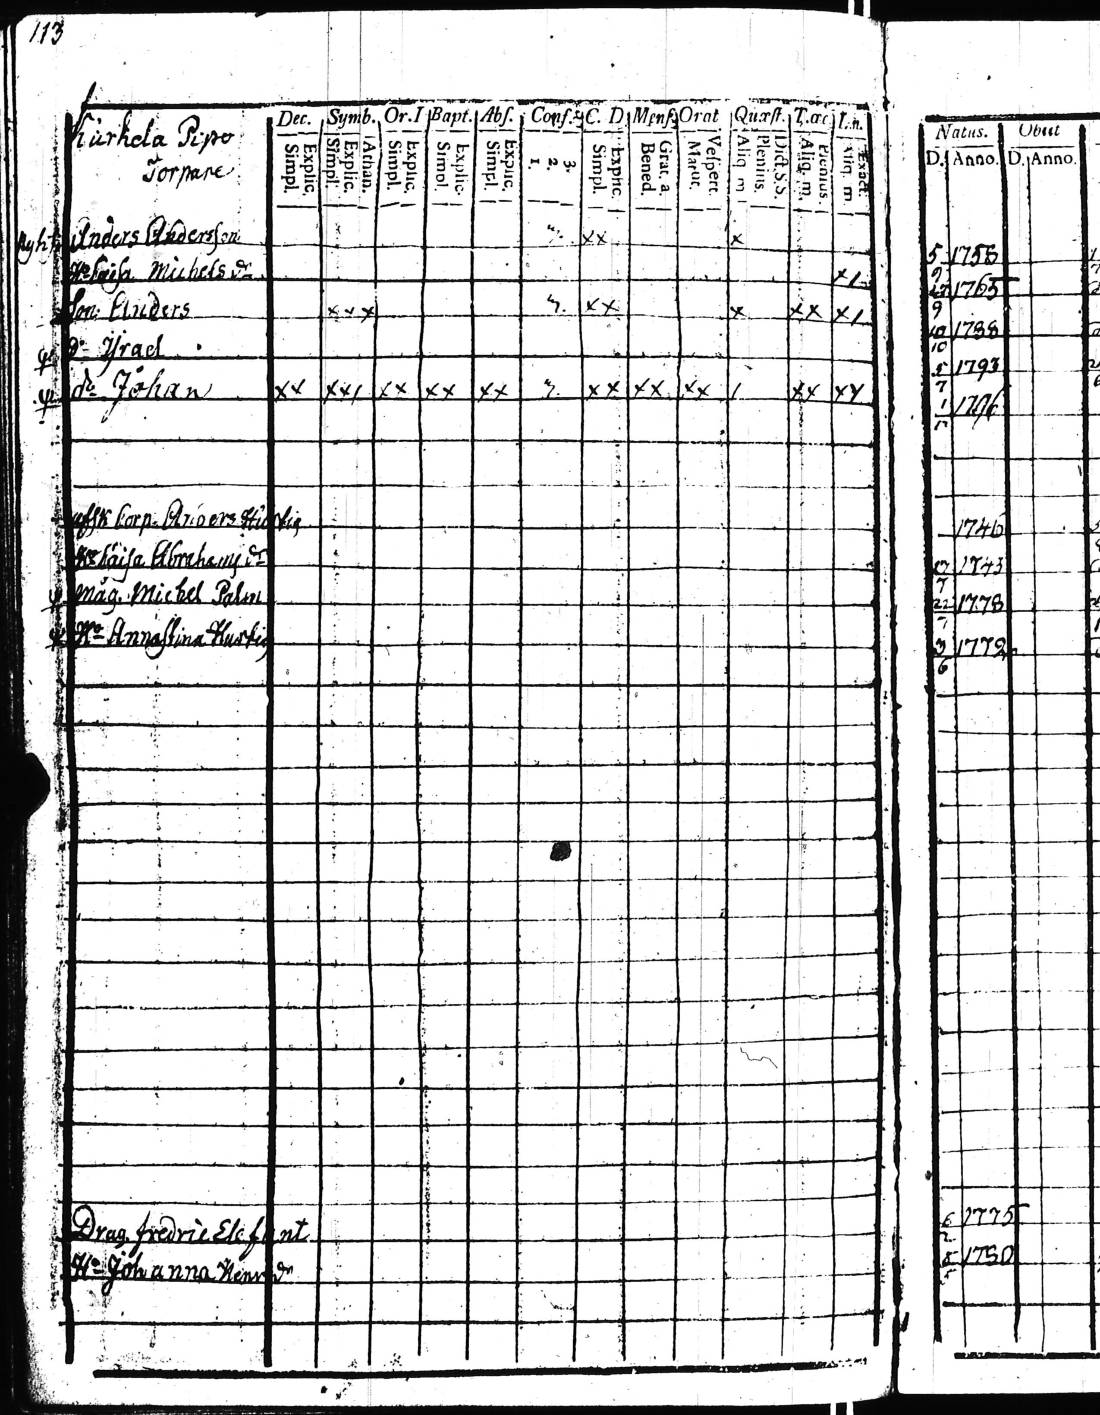 113
Kürkela Pipo
Torpare
Dec. Symb. Or. Bapt. Abs. Conf. C. D Mens. Orat Quæst. T. œc I.n.
Simpl. Explic. Simpl. Explic. Athan. Simpl. Explic. Simpl. Explic. Simpl. Explic. 1. 2. 3. Simpl. Explic. Bened. Grat. a. Matut. Vespert. Aliq. m Plenius. Dict. S.S. Aliq. m. Plenius. Aliq. m. Exact.
Natus. Obiit
D. Anno. D. Anno.
Anders Andersson xx x 5 1758
9
Ho Caisa Michels dr x 1765
9
Son: Anders xxx xx x xx x 10 1788
10
do Ijrael 5 1793
7
do Johan xx xx xx xx xx xx xx xx xx 1 1796
Corp. Anders Hurtig 1746
Ho Caisa Abrahams dr 17 1743
7
Måg. Michel Palm 22 1778
Ho Annastina Hurtig 3 1772
6
Drag. fredric Elefant 6 1775
2
Ho Johanna Henr dr 8 1780